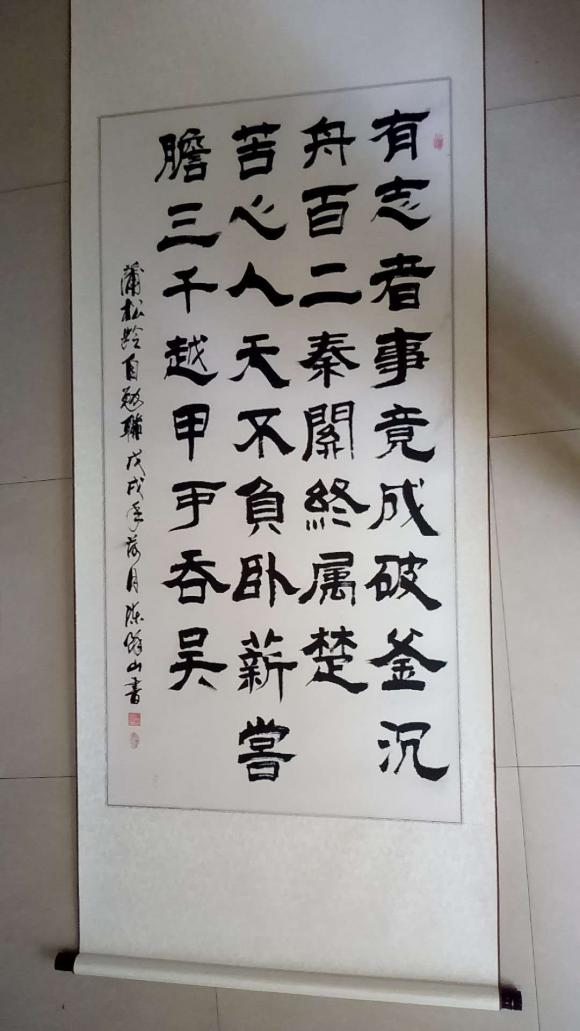 有志者事竟成破釜沉
舟百二秦關終属楚
苦心人天不負卧薪嘗
膽三千越甲可吞吳
蒲松龄自勉聯戊戌年月陈山書